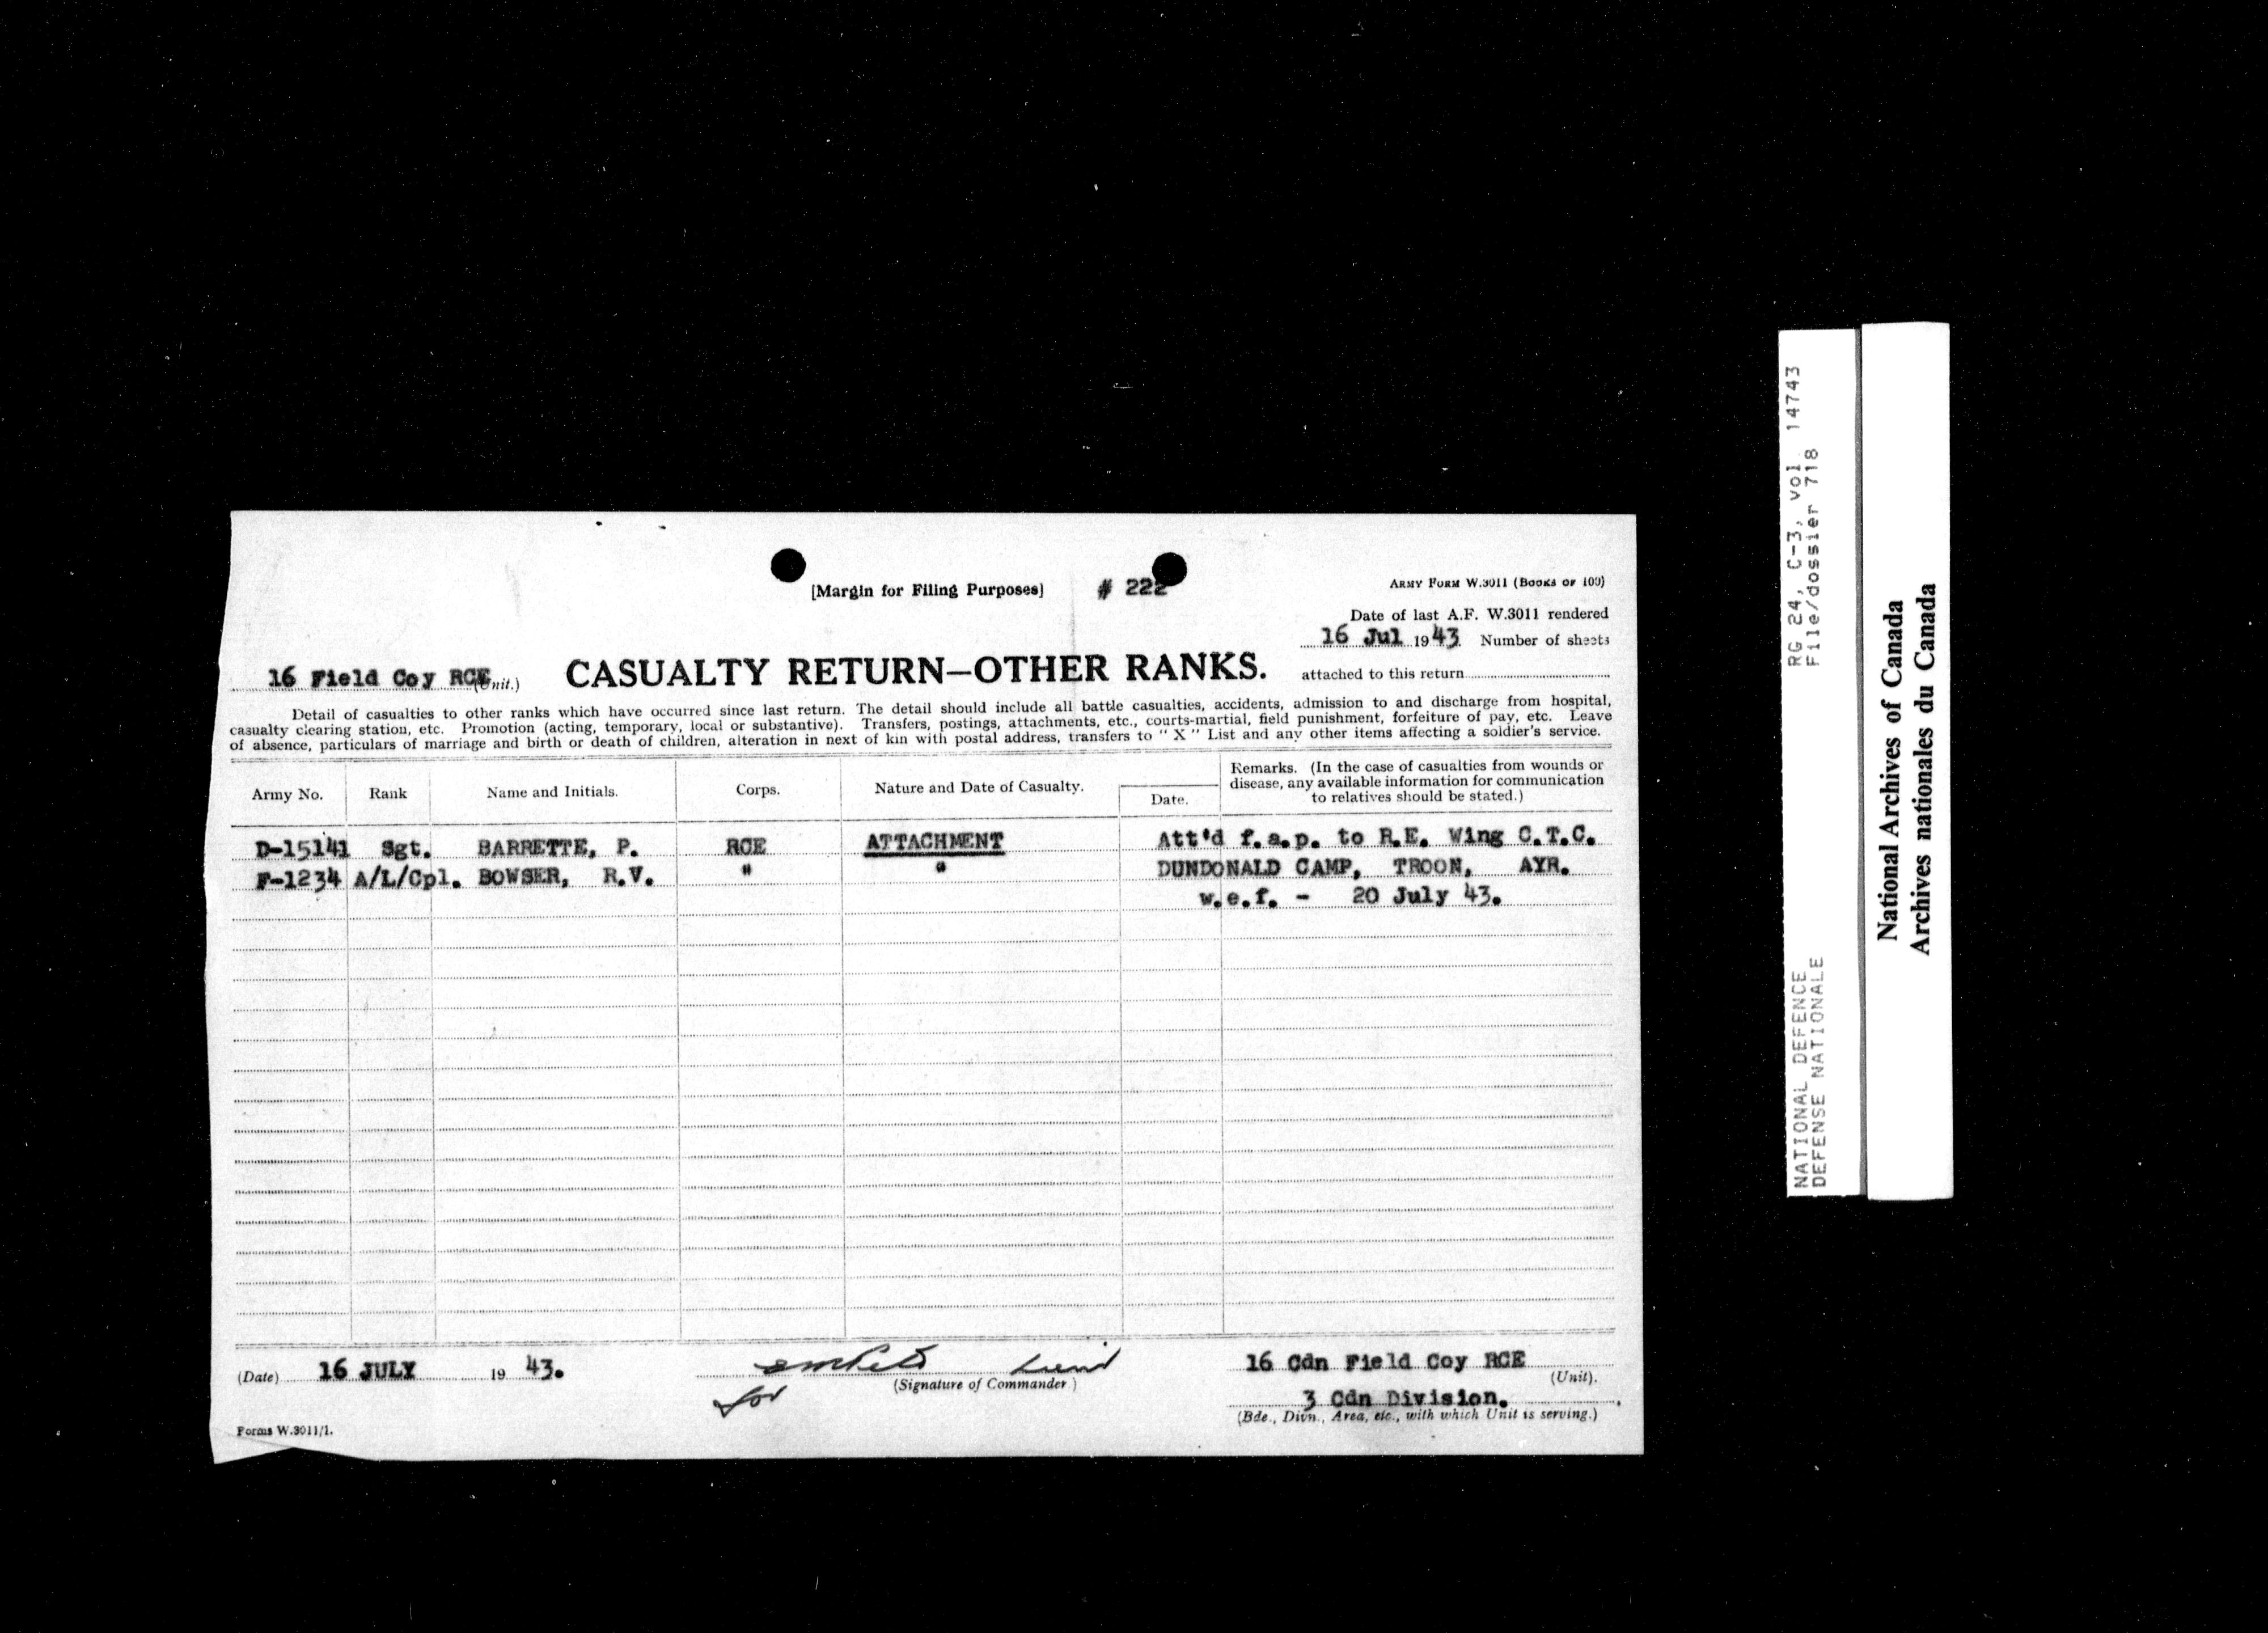 [Margin for Filing Purposes]
# 222
ARMY FORM W.3011 (BOOKS OF 100)
Date of last A.F. W.3011 rendered
16 Jul 1943. Number of sheets
16 Field Coy RCE (Unit.)
CASUALTY RETURN—OTHER RANKS.
attached to this return
Detail of casualties to other ranks which have occurred since last return. The detail should include all battle casualties, accidents, admission to and discharge from hospital,
casualty clearing station, etc. Promotion (acting, temporary, local or substantive). Transfers, postings, attachments, etc., courts-martial, field punishment, forfeiture of pay, etc. Leave
of absence, particulars of marriage and birth or death of children, alteration in next of kin with postal address, transfers to "X" List and any other items affecting a soldier's service.
Army No. Rank Name and Initials. Corps. Nature and Date of Casualty. Date.
Remarks. (In the case of casualties from wounds or
disease, any available information for communication
to relatives should be stated.)
D-15141 Sgt. BARRETTE, P. RCE ATTACHMENT Att'd f.a.p. to R.E. Wing C.T.C.
F-1234 A/L/Cpl. BOWSER, R.V. " " DUNDONALD CAMP, TROON, AYR.
w.e.f. - 20 July 43.
(Date) 16 JULY 19 43.
for
(Signature of Commander)
16 Cdn Field Coy RCE
(Unit).
3 Cdn Division.
(Bde., Divn., Area, etc., with which Unit is serving.)
Forms W.3011/1.
NATIONAL DEFENCE RG 24, C-3, vol. 14743
DEFENSE NATIONALE File/dossier 718
National Archives of Canada
Archives nationales du Canada